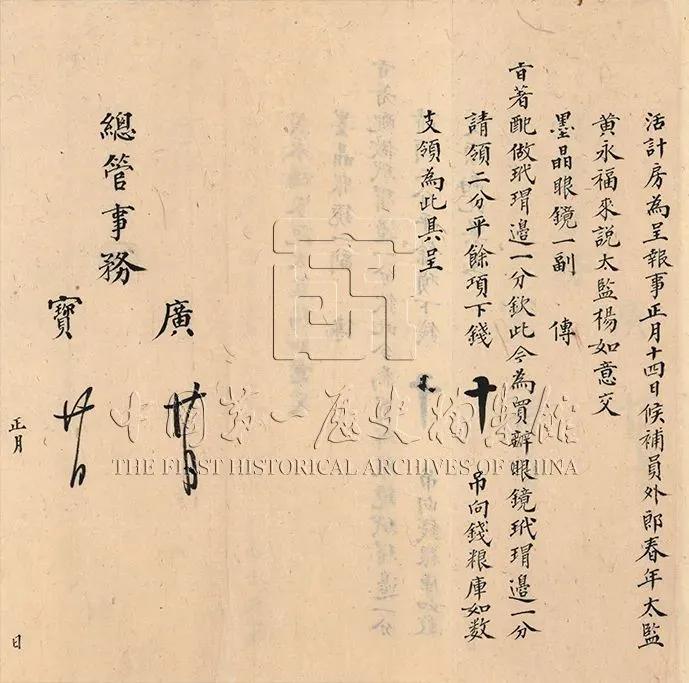 活計房為呈報事正月十四日候補員外郎春年太監
黃永福來説太監楊如意交
墨晶眼鏡一副　傳
旨著配做玳瑁邊一分欽此今為買辦眼鏡玳瑁邊一分
請領二分平餘項下錢　十　吊向錢粮庫如數
支領為此具呈
總管事務
廣
寶
正月　日
中国第一歷史檔案館
THE FIRST HISTORICAL ARCHIVES OF CHINA